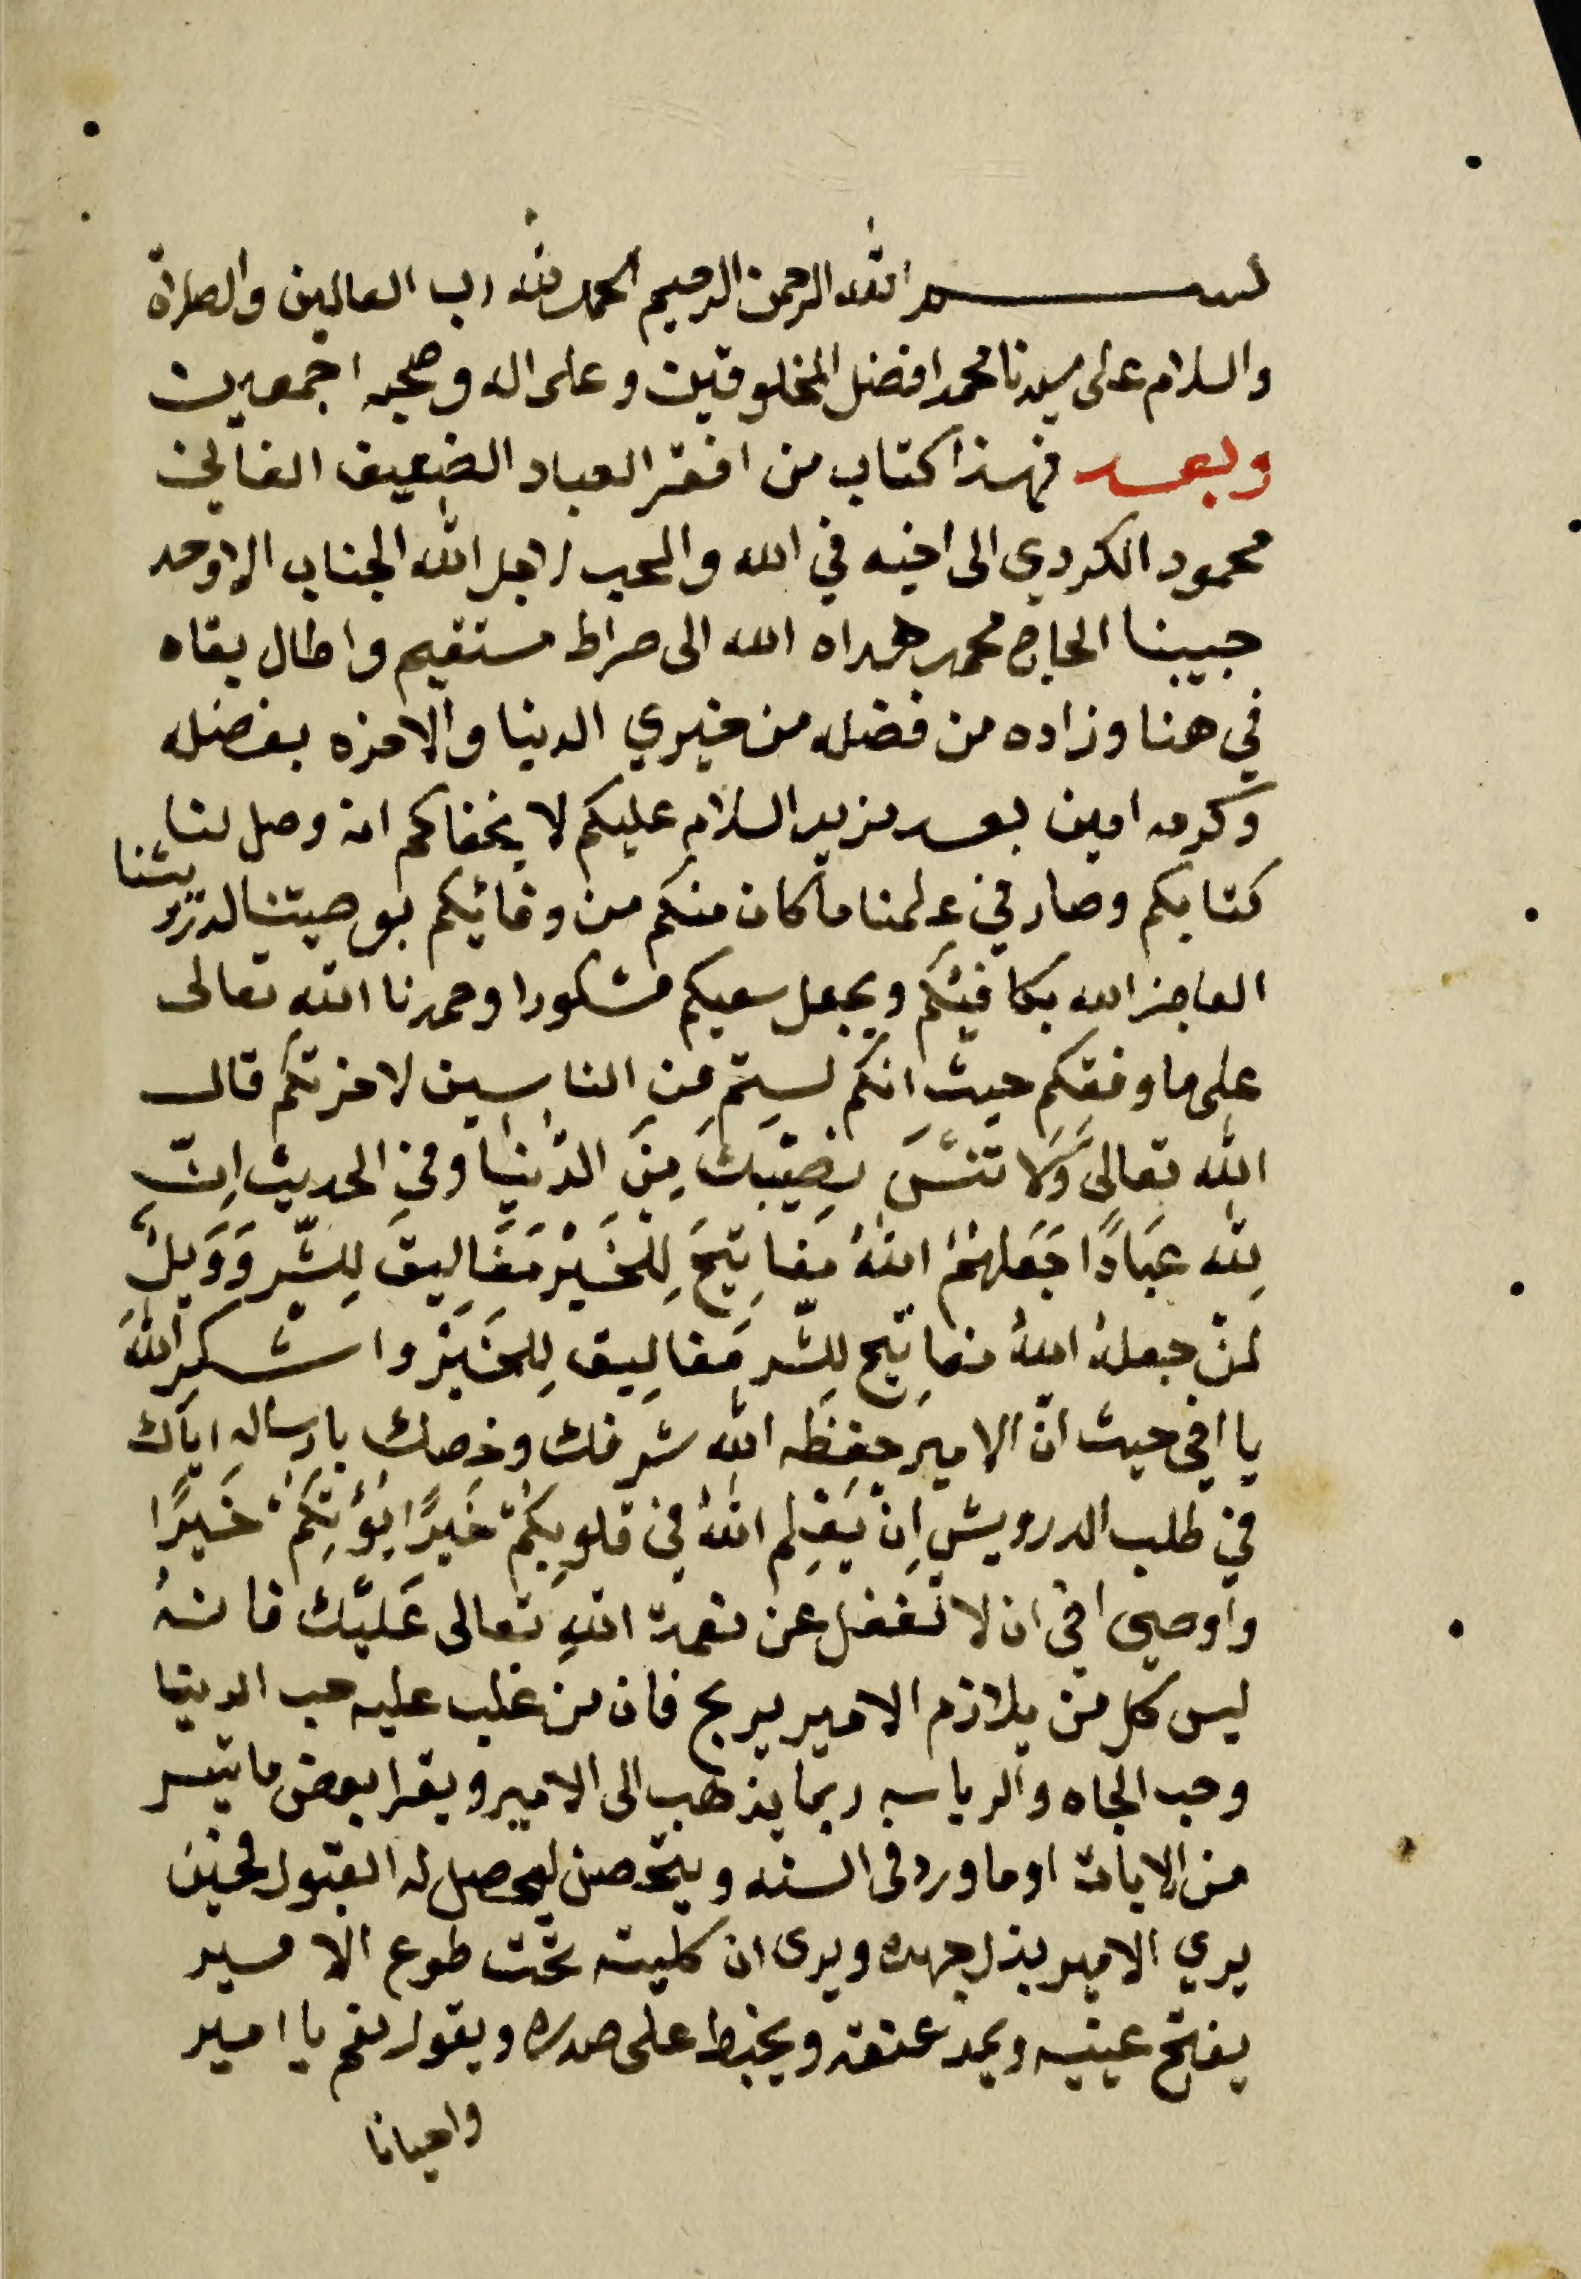 بسم الله الرحمن الرحيم الحمد لله رب العالمين والصلاة
والسلام على سيدنا محمد افضل المخلوقين وعلى اله وصحبه اجمعين
وبعد فهذا كتاب من افقر العباد الضعيف الفاني
محمود الكردي الى اخيه في الله والمحب لاجل الله الجناب الاوحد
حبيبنا الحاج محمد هداه الله الى صراط مستقيم واطال بقاه
في هنا وزاده من فضله من خيري الدنيا والاخره بفضله
وكرمه امين بعد مزيد السلام عليكم لا يخفاكم انه وصل لنا
كتابكم وصار في علمنا ما كان منكم من وفائيكم بوصيتنا لدرويشنا
العاجز الله يكافيكم ويجعل سعيكم مشكورا وحمدنا الله تعالى
على ما وفقكم حيث انكم لستم من الناسين لاخرتكم قال
الله تعالى وَلَا تَنْسَ نَصِيْبَكَ مِنَ الدُّنْيَا وفي الحديث اِنّ
لِله عِبَادًا جَعَلَهُمُ اللهُ مَفَاتِيْحَ لِلْخَيْرِ مَغَالِيقَ لِلشَّرِ وَوَيلٌ
لمنْ جعلهُ اللهُ مفاتيح لِلشَّرِ مَغالِيق لِلخَيْرِ واشكرِ اللهَ
يا اخي حيث انّ الاميرَ حفِظَه الله شرفك وخصك بارساله اياك
في طلب الدرويش اِنْ يَعْلِم اللهُ فِي قلوبِكُمْ خَيرًا يُؤْتِكُمْ خَيرًا
واوصي اخي ان لا تغفل عن نعمة اللهِ تعالى عَليْك فانهُ
ليس كل من يلازم الامير يربح فان من غلب عليه حب الدنيا
وحب الجاه والرياسه ربما يذهب الى الامير ويقرا بعض ما تيسر
من الايات او ما ورد في السنه ويتخصن ليحصل له القبول فحين
يري الامير يبذل جهده ويرى ان كليته تحت طوع الامير
يفتح عينيه ويمد عنقه ويخبط على صدره ويقول نعم يا امير
واحيانا